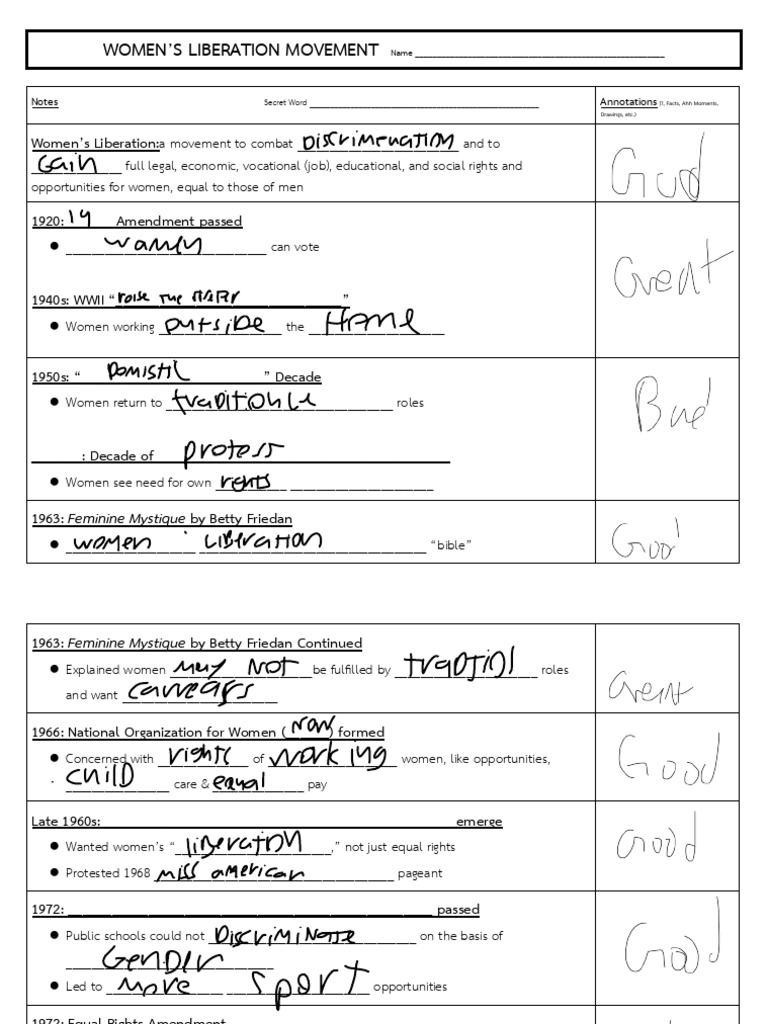 WOMEN'S LIBERATION MOVEMENT Name
Notes Secret Word Annotations (!, Facts, Ahh Moments, Drawings, etc.)
Women's Liberation:a movement to combat DISCRIMENATION and to
Gain full legal, economic, vocational (job), educational, and social rights and
opportunities for women, equal to those of men
Good
1920: 19 Amendment passed
● can vote
Great
1940s: WWII “roise THE "
● Women working outside the Home
1950s: “ Domistic ” Decade
● Women return to roles
Bad
: Decade of protess
● Women see need for own rights
1963: Feminine Mystique by Betty Friedan
● women LIBERATION “bible”
Good
1963: Feminine Mystique by Betty Friedan Continued
● Explained women may NOT be fulfilled by roles
and want
Great
1966: National Organization for Women ( NOW ) formed
● Concerned with rights of working women, like opportunities,
CHILD care & equal pay
Good
Late 1960s: emerge
● Wanted women's “ liberation ,” not just equal rights
● Protested 1968 miss american pageant
Good
1972: passed
● Public schools could not on the basis of
GENDER
● Led to More sport opportunities
Good
1972: Equal Rights Amendment